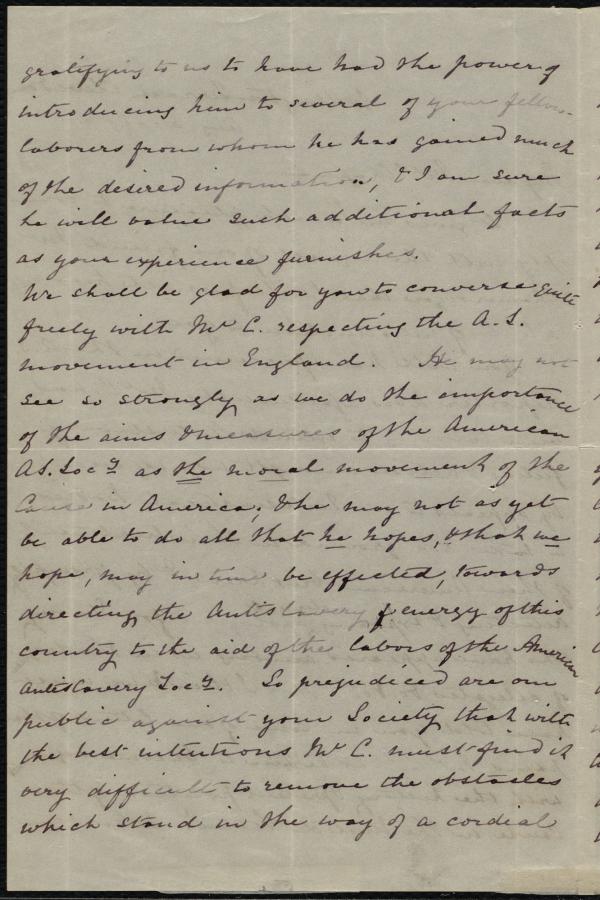 gratifying to us to have had the power of
introducing him to several of your fellow-
laborers from whom he has gained much
of the desired information, & I am sure
he will value such additional facts
as your experience furnishes.
We shall be glad for you to converse quite
freely with Mr C. respecting the A. S.
movement in England. He may not
see so strongly as we do the importance
of the aims & measures of the American
A S. Socy as the moral movement of the
Cause in America; & he may not as yet
be able to do all that he hopes, & that we
hope, may in time be effected, towards
directing the Antislavery energy of this
country to the aid of the labors of the American
Antislavery Socy. So prejudiced are our
public against your Society that with
the best intentions Mr C. must find it
very difficult to remove the obstacles
which stand in the way of a cordial